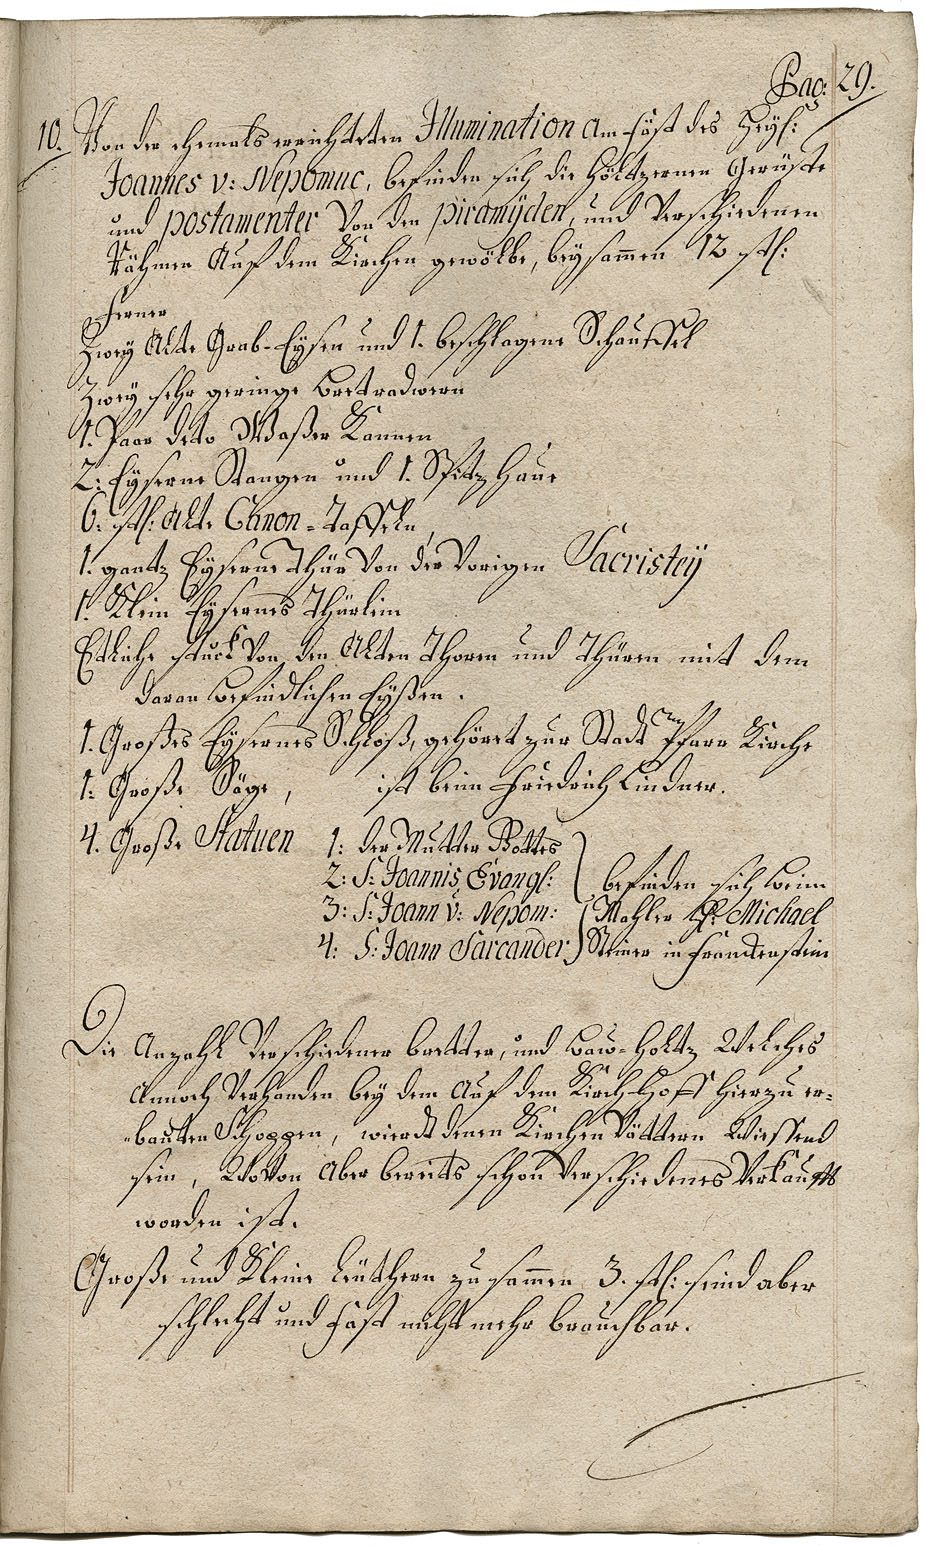 Pag: 29.
10. Von der ehemals errichteten Illumination am Fäst des Heyl:
Joannes v: Nepomuc, befinden sich die höltzernen Gerüste
und postamenter Von den piramÿden, und Verschiedenen
Rähmen Auf dem Kirchen gewölbe, beysammen 12 stk:
Ferner
Zwey Alte Grab-Eysen und 1. beschlagene Schauffel
Zwey sehr geringe bretradwern
1. Paar deto Waßer Kannen
2: Eyserne Stangen und 1. Spitz Haue
6: stk: Alte Canon-Taffeln,
1. gantz Eyserne Thür Von der Vorigen Sacristeÿ
1. Klein Eysernes Thürlein
Etliche stuck Von den Alten Thoren und Thüren mit dem
daran befindlichen Eyßen.
1. Großes Eysernes Schloß, gehöret zur Stadt Pfarr Kirche
1: Große Säge, ist beim Friedrich Lindner.
4. Große Statuen 1: der Mutter Gottes
2: S: Joannis Evangl: befinden sich beim
3: S: Joann v: Nepom: Mahler H: Michael
4: S: Joann Sarcander Steiner in Franckenstein
Die Anzahl Verschiedener bretter, und Bau-Holtz Welches
Annoch Verhanden bey dem Auf dem Kirch-Hoff hierzu er-
bauten Schoppen, wierdt denen Kirchen Vättern Wissend
sein, WoVon Aber bereits schon Verschiedenes Verkaufft
worden ist.
Große und Kleine Leüthern zusammen 3. stk: seind aber
schlecht und fast nicht mehr brauchbar.